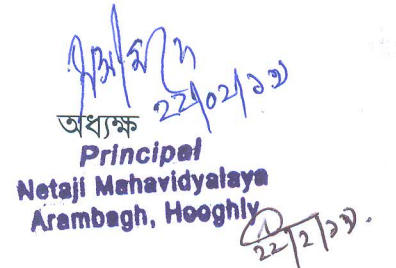 ২২/০২/১৩
অধ্যক্ষ
Principal
Netaji Mahavidyalaya
Arambagh, Hooghly
২২/২/১৩.